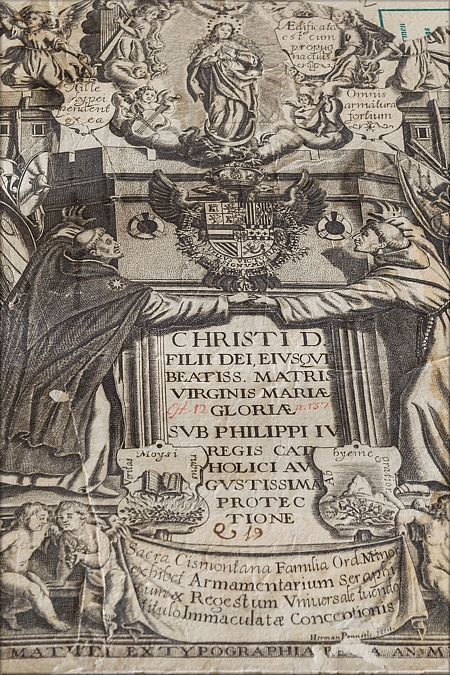 Ædificata
est cum
propug
naculis
Mille
clypei
pendent
ex ea
Omnis
armatura
fortium
CHRISTI D.
FILII DEI, EIVSQVE
BEATISS. MATRIS
VIRGINIS MARIÆ
GLORIÆ
SVB PHILIPPI IV
REGIS CAT
HOLICI AV
GVSTISSIMA
PROTEC
TIONE
Q 19
Moysi
Ab hyeme
Sacra Cismontana Familia Ord. Minor
exhibet Armamentarium Seraphi
cum & Regestum Vniuersale tuendo
titulo Immaculatæ Conceptionis
Herman
MATRITI EX TYPOGRAPHIA REGIA AN. M